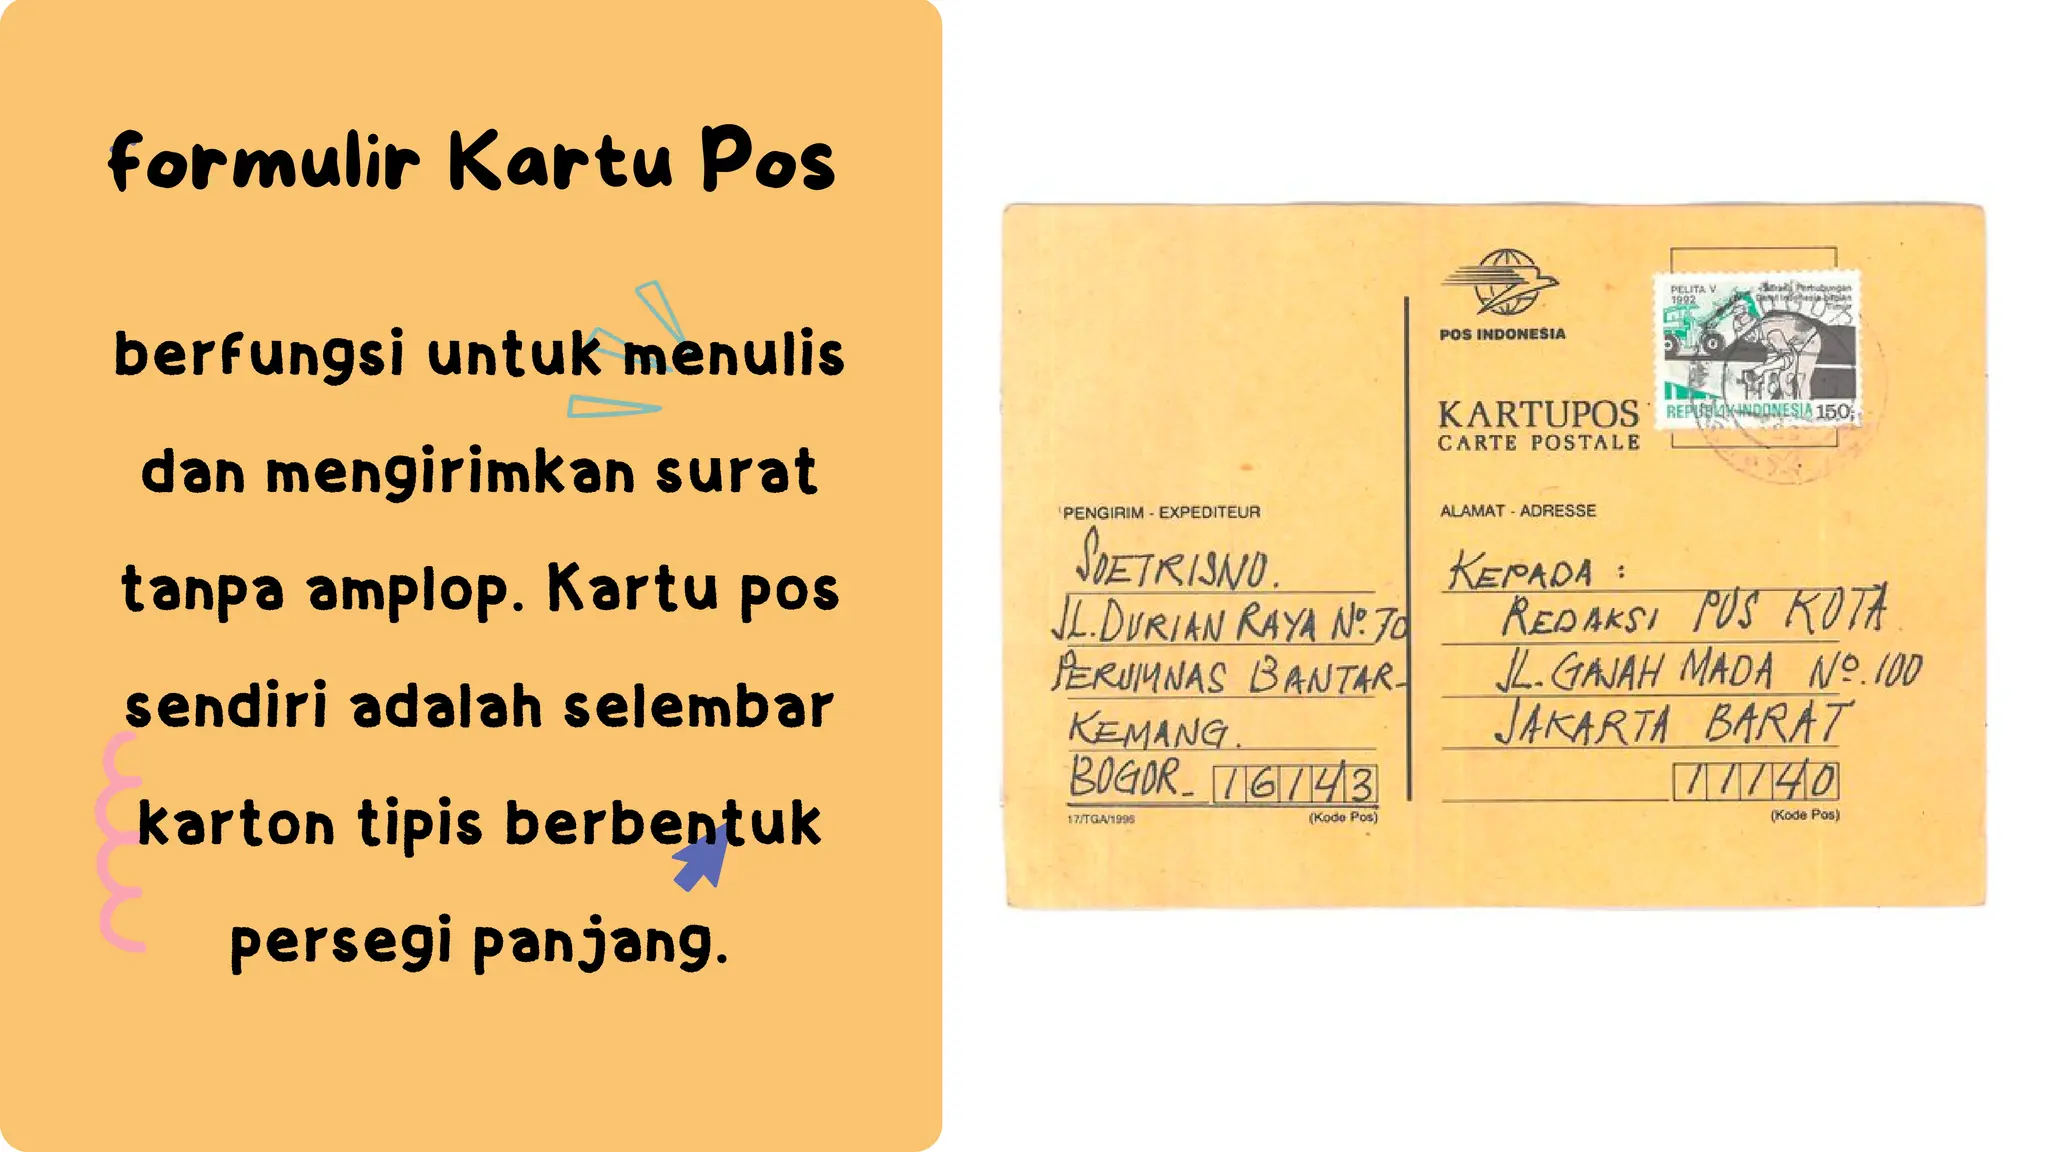 formulir Kartu Pos
berfungsi untuk menulis
dan mengirimkan surat
tanpa amplop. Kartu pos
sendiri adalah selembar
karton tipis berbentuk
persegi panjang.
POS INDONESIA
KARTUPOS
CARTE POSTALE
PELITA V
1992
REPUBLIK INDONESIA 150,-
PENGIRIM - EXPEDITEUR
SOETRISNO.
JL. DURIAN RAYA No. 70
PERUMNAS BANTAR-
KEMANG.
BOGOR_ 16143
17/TGA/1996
(Kode Pos)
ALAMAT - ADRESSE
KEPADA :
REDAKSI POS KOTA
JL. GAJAH MADA No. 100
JAKARTA BARAT
11140
(Kode Pos)